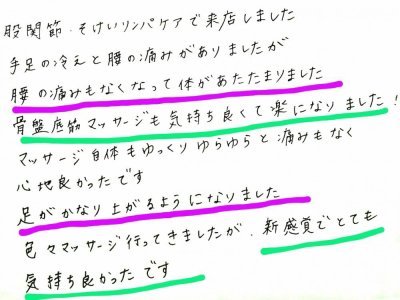 股関節・そけいリンパケアで来店しました
手足の冷えと腰の痛みがありましたが
腰の痛みもなくなって体があたたまりました
骨盤底筋マッサージも気持ち良くて楽になりました!
マッサージ自体もゆっくりゆらゆらと痛みもなく
心地良かったです
足がかなり上がるようになりました
色々マッサージ行ってきましたが、新感覚でとても
気持ち良かったです